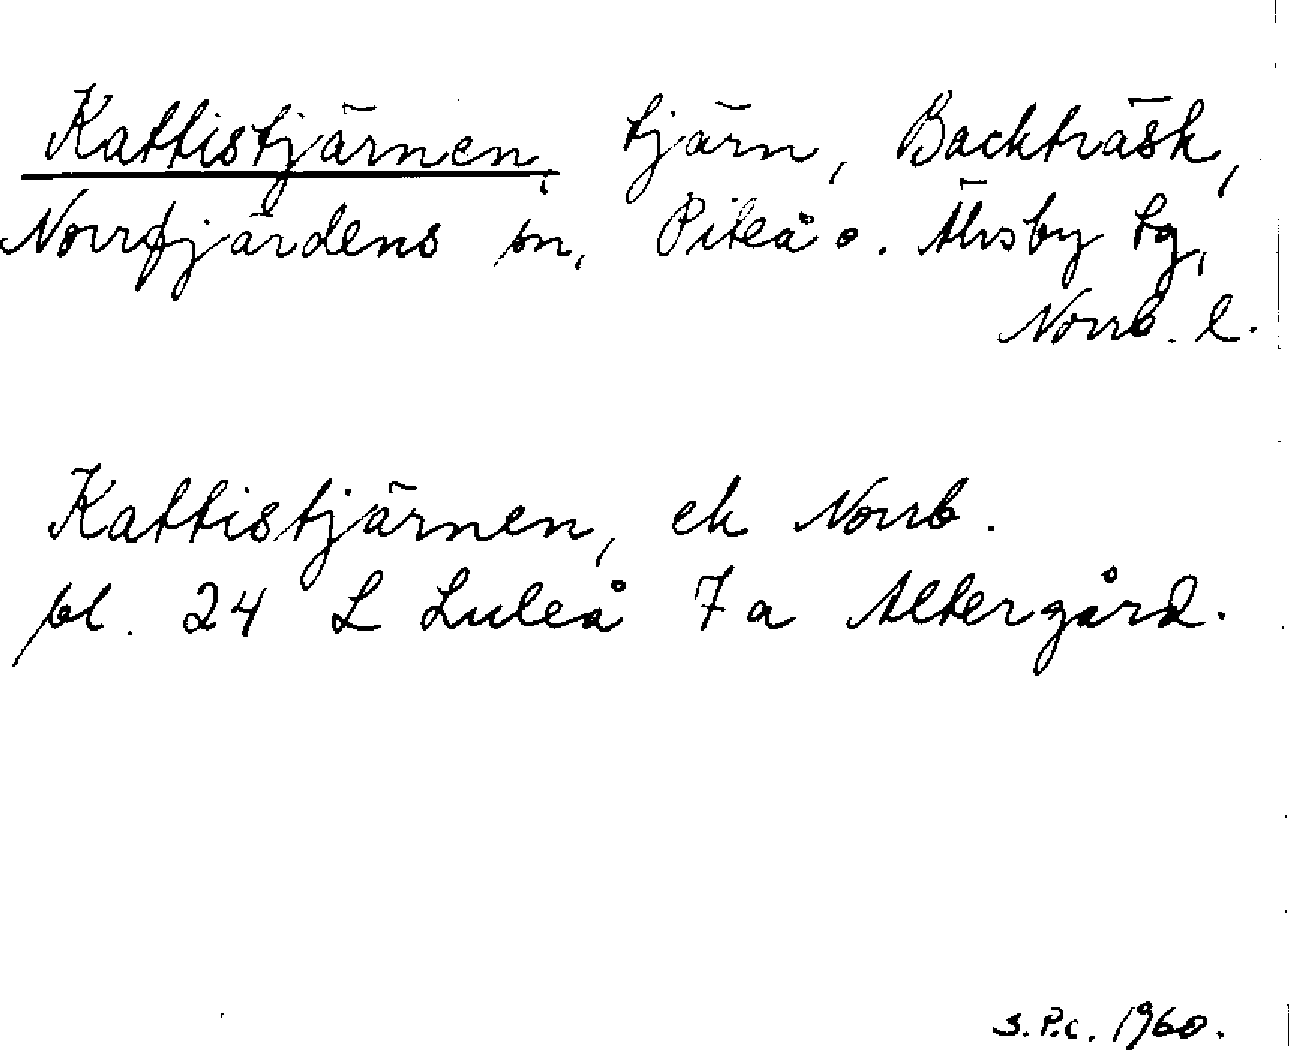 Kattistjärnen, tjärn, Backträsk,
Norrfjärdens sn, Piteå o. Älvsby tg,
Norrb. l.
Kattistjärnen, ek Norrb.
bl. 24 L Luleå 7a Altergård.
S.P.C. 1960.